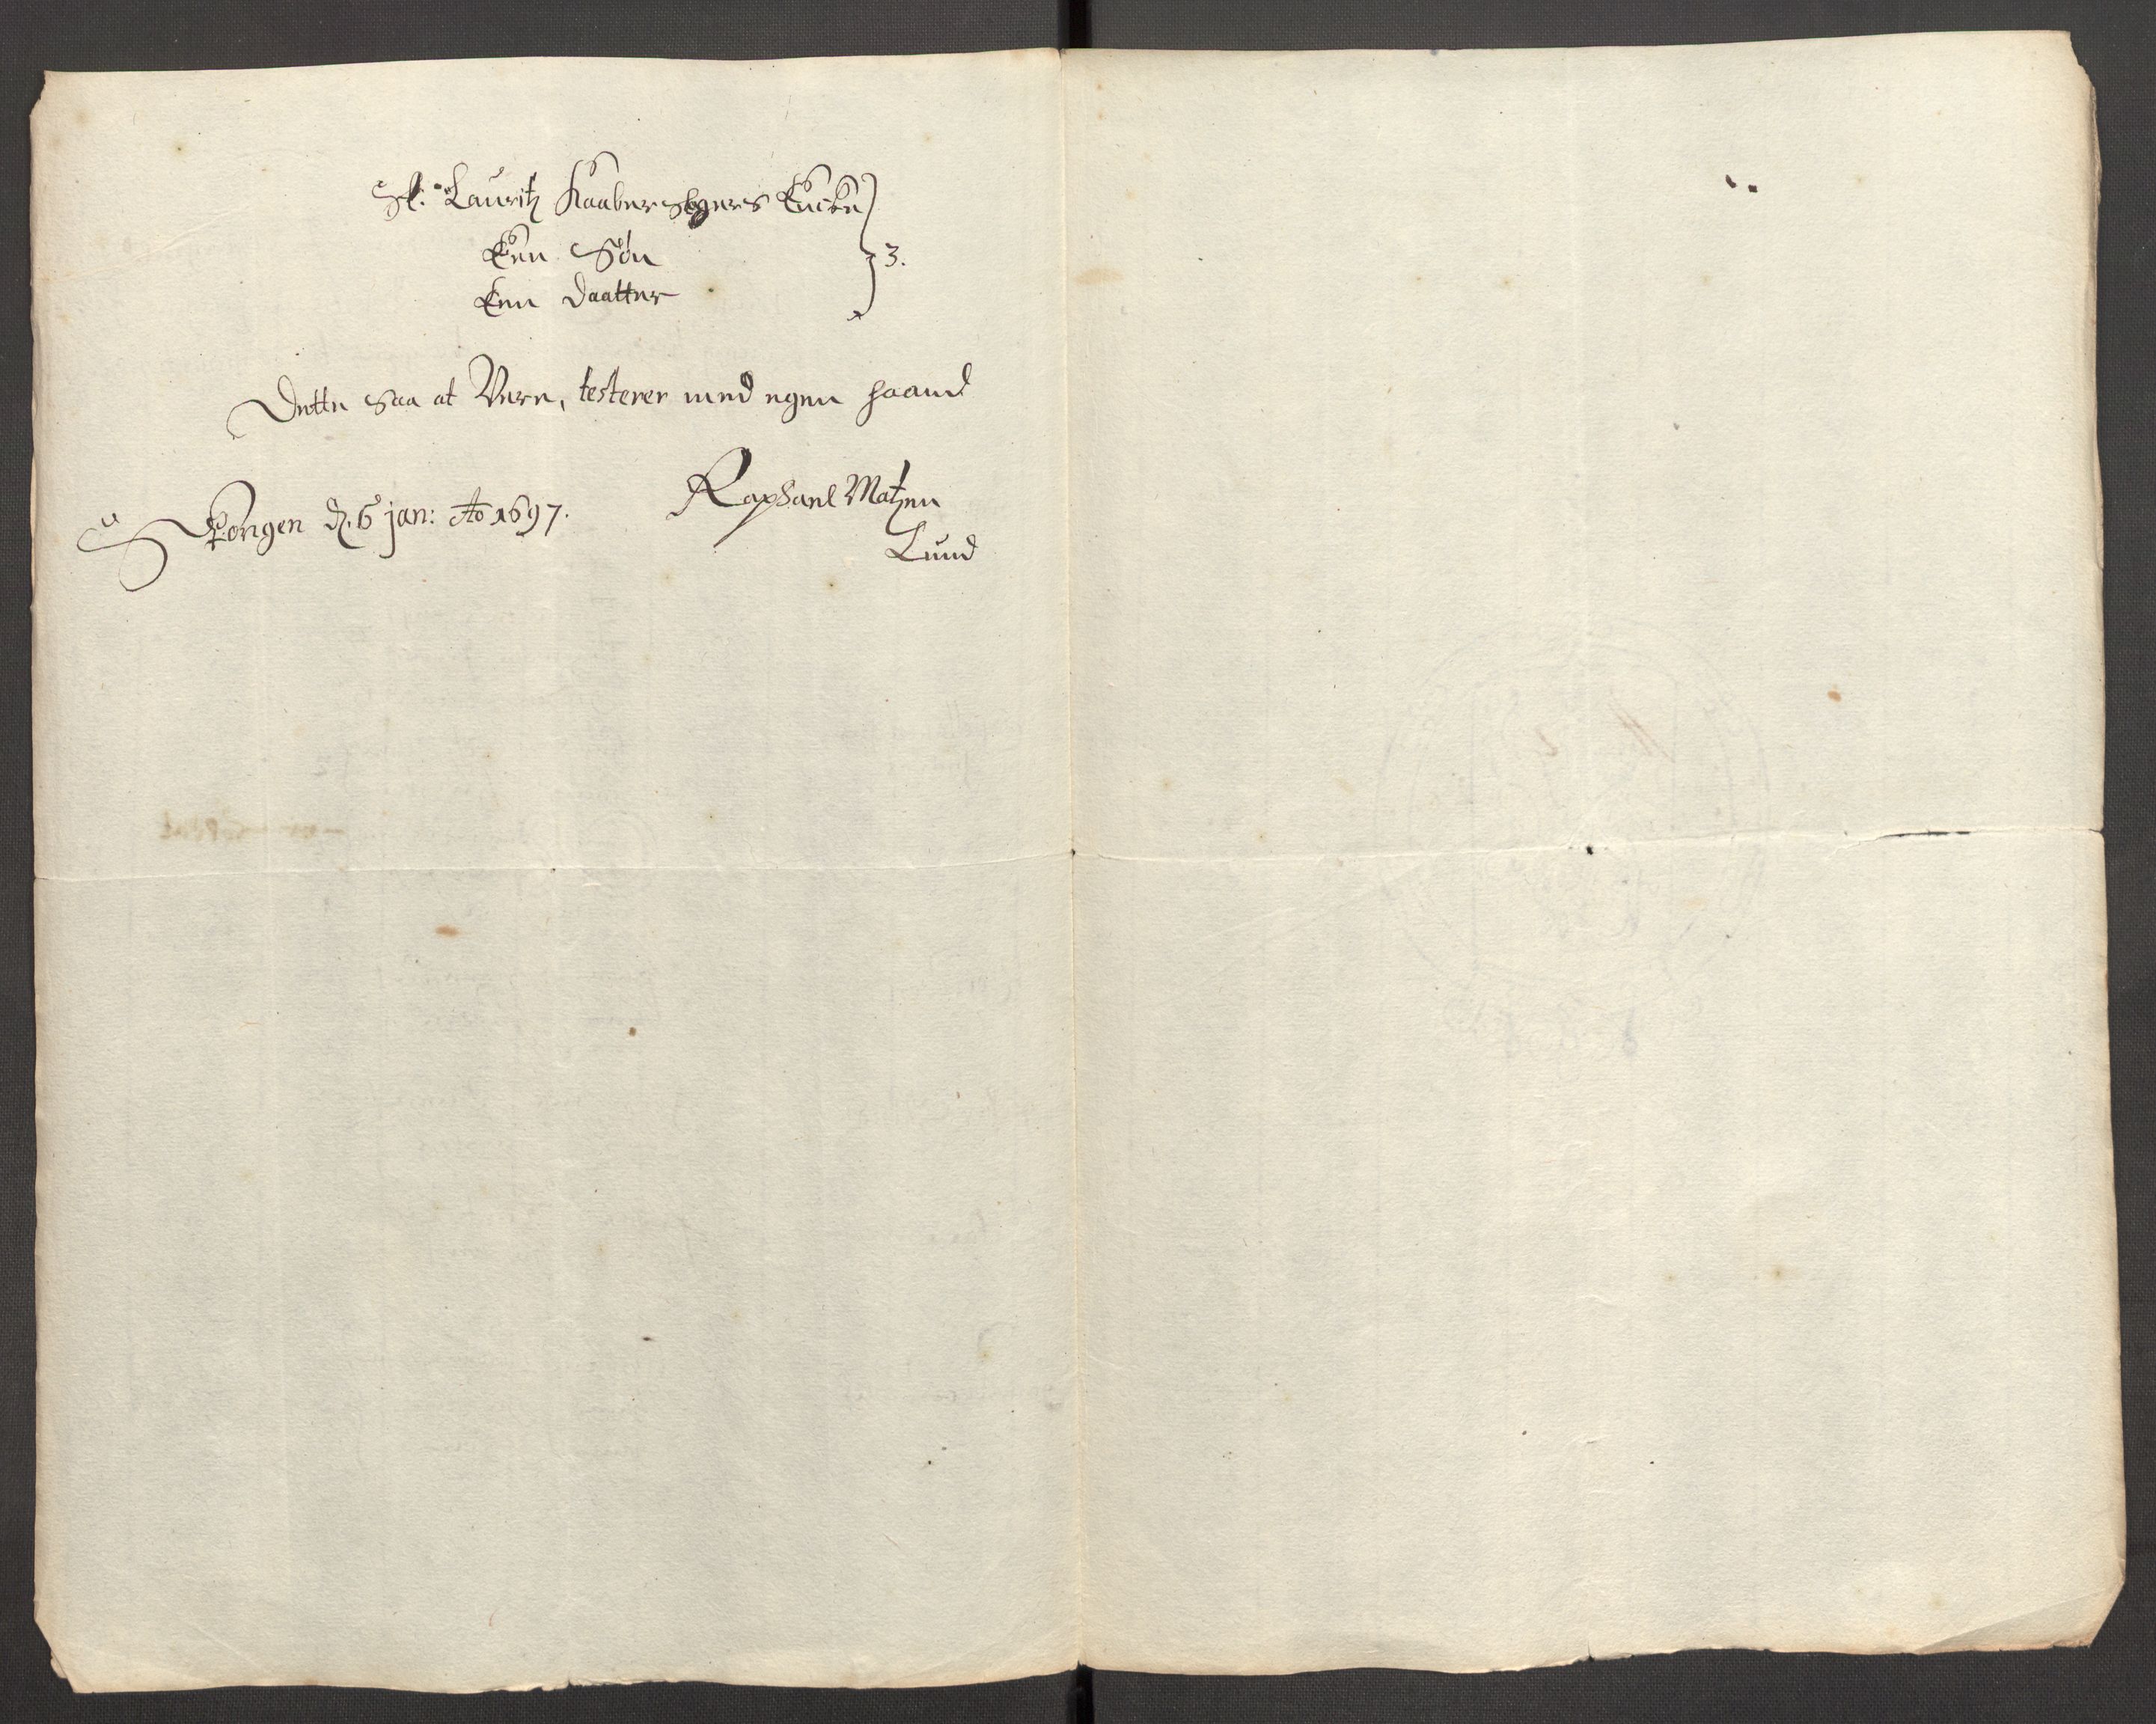 Sl: Lauritz Kaaberslgers Encke
Een Søn 3.
Een Daatter
Dette saa at Være, testerer med egen haand
Skongen d. 6 jan: Ao 1697.
Raphael Matzen
Lund